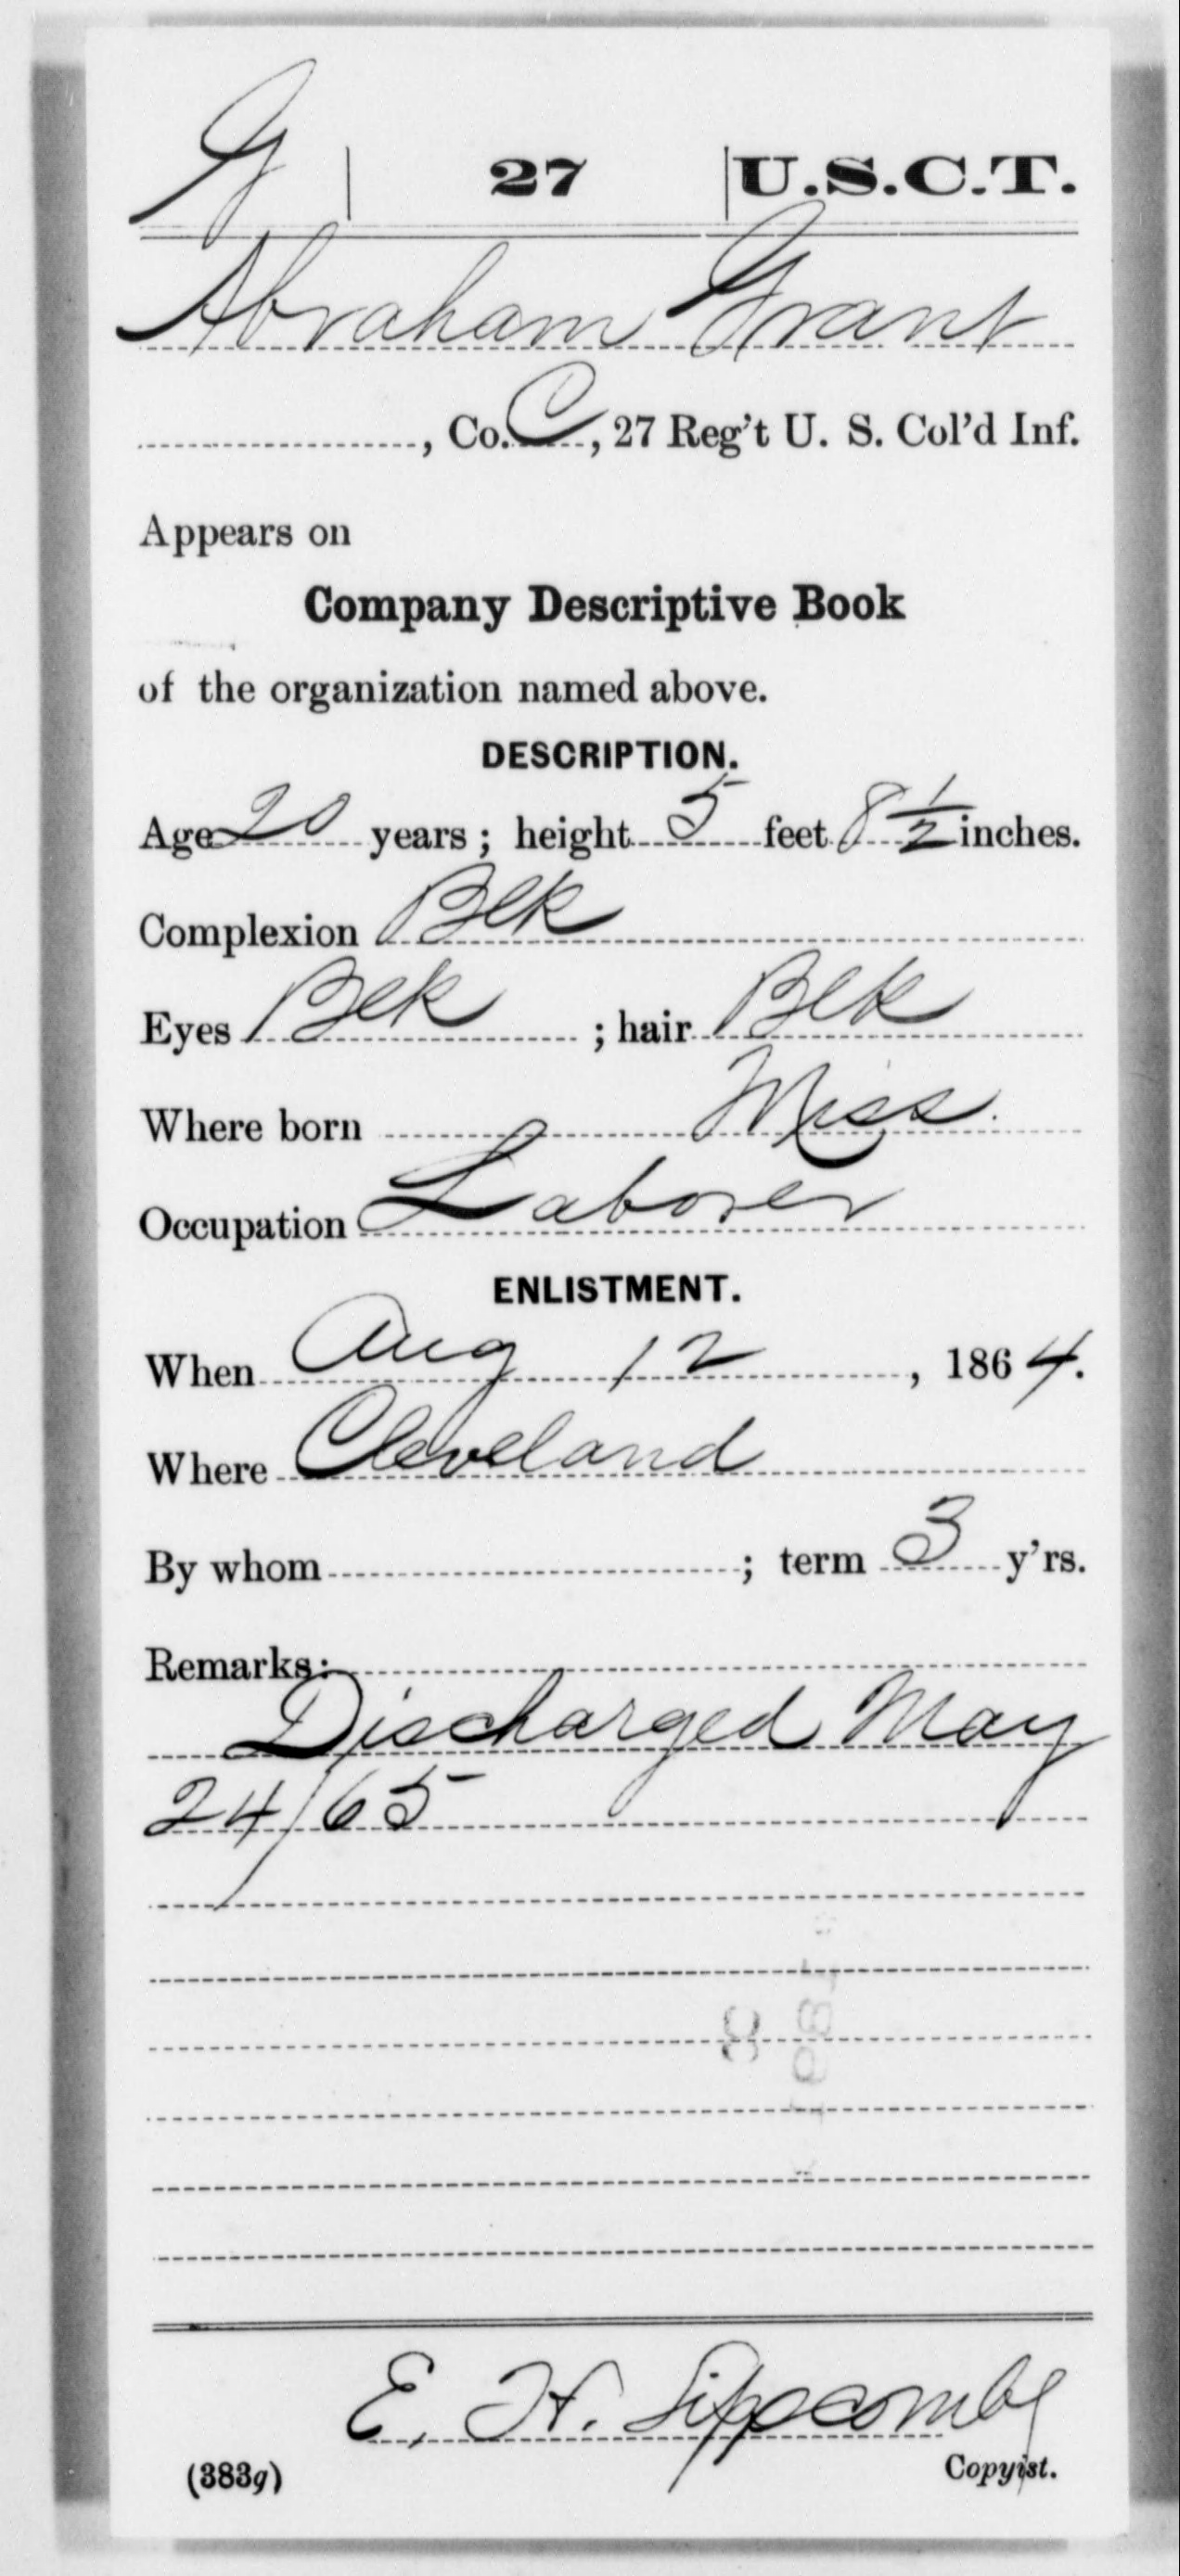 G | 27 | U.S.C.T.
Abraham Grant
, Co. C, 27 Reg't U. S. Col'd Inf.
Appears on
Company Descriptive Book
of the organization named above.
DESCRIPTION.
Age 20 years; height 5 feet 8 1/2 inches.
Complexion Blk
Eyes Blk ; hair Blk
Where born Miss.
Occupation Laborer
ENLISTMENT.
When Aug 12, 1864.
Where Cleveland
By whom ; term 3 y'rs.
Remarks:
Discharged May
24/65
E. H. Lipscomb
(383g) Copyist.